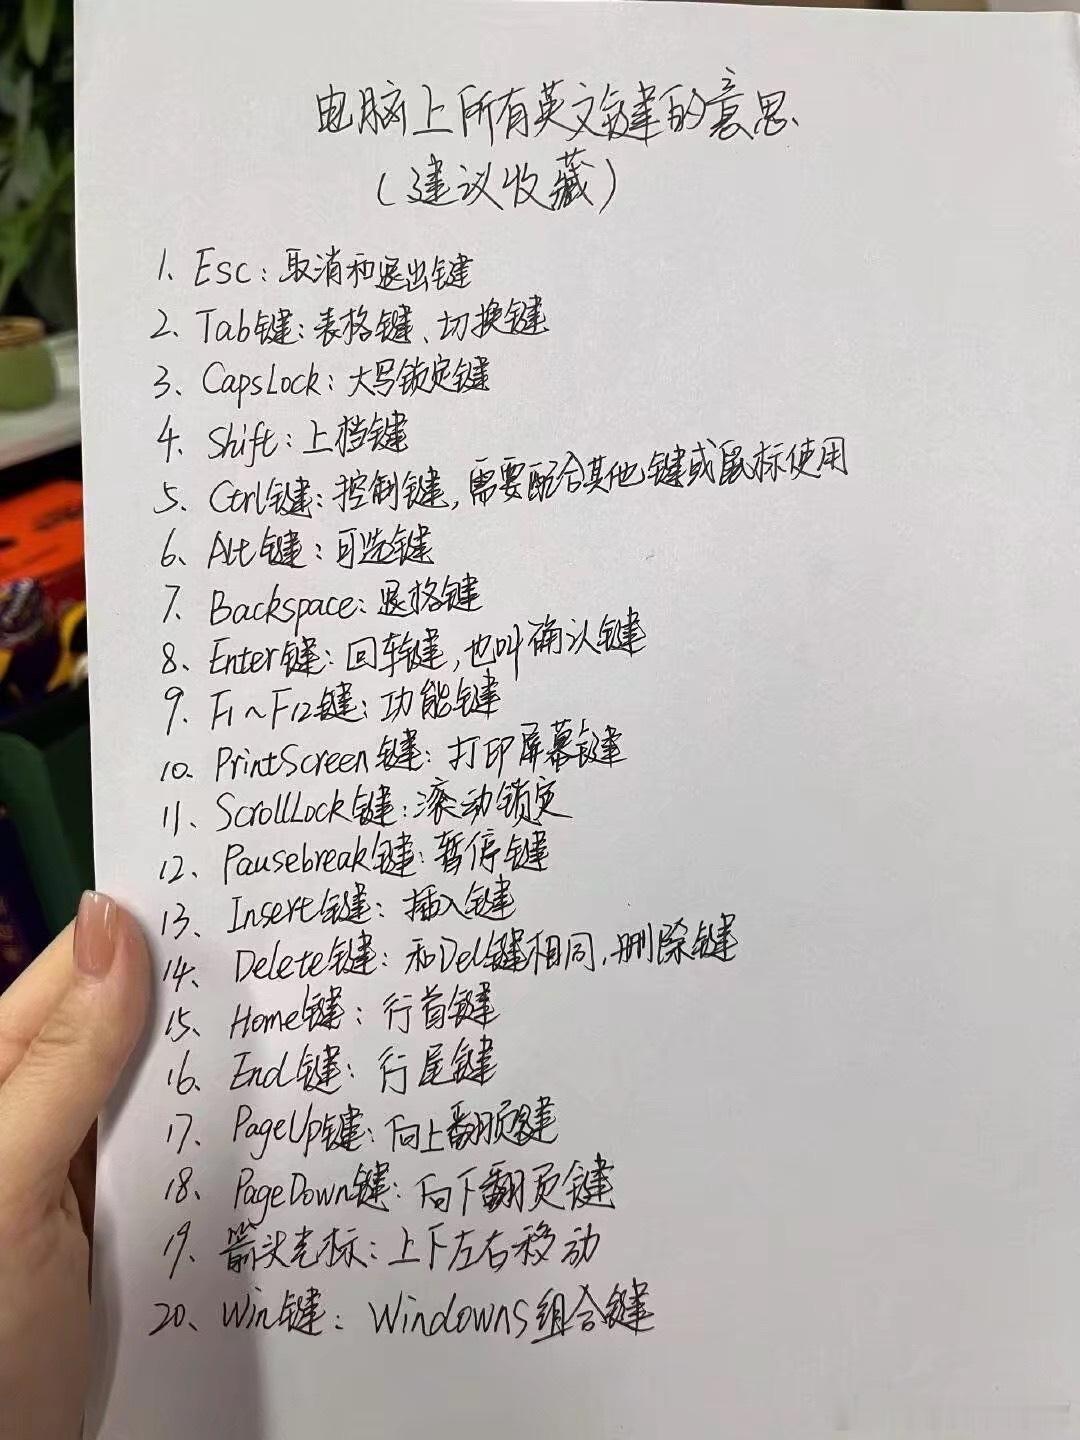 电脑上所有英文键的意思
(建议收藏)
1、Esc:取消和退出键
2、Tab键:表格键、切换键
3、CapsLock:大写锁定键
4、Shift:上档键
5、Ctrl键:控制键,需要配合其他键或鼠标使用
6、Alt键:可选键
7、Backspace:退格键
8、Enter键:回车键,也叫确认键
9、F1~F12键:功能键
10、PrintScreen键:打印屏幕键
11、ScrollLock键:滚动锁定
12、Pausebreak键:暂停键
13、Insert键:插入键
14、Delete键:和Del键相同,删除键
15、Home键:行首键
16、End键:行尾键
17、PageUp键:向上翻页键
18、PageDown键:向下翻页键
19、箭头光标:上下左右移动
20、Win键:Windowns组合键